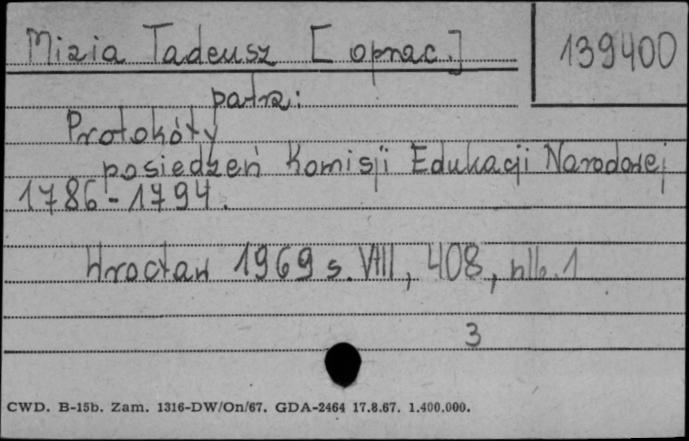 Mizia Tadeusz [oprac.]
139400
patrz:
Protokóły
posiedzeń Komisji Edukacji Narodowej
1786-1794.
Wrocław 1969 s. VIII, 408, nlb. 1
3
CWD. B-15b. Zam. 1316-DW/On/67. GDA-2464 17.8.67. 1.400.000.